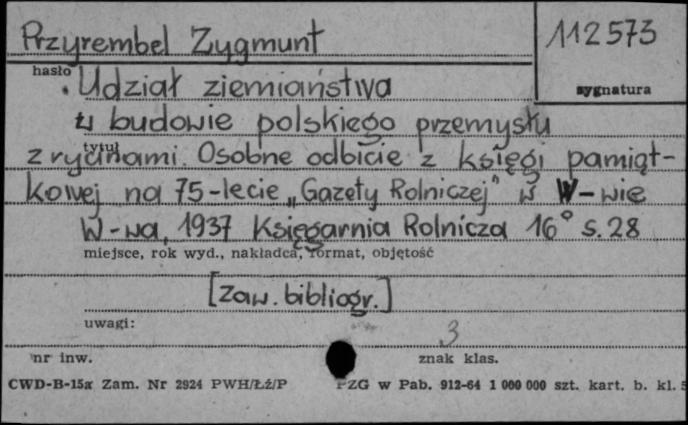 Przyrembel Zygmunt
112573
hasło
sygnatura
.Udział ziemiaństwa
w budowie polskiego przemysłu
tytuł
z rycinami. Osobne odbicie z księgi pamiąt-
kowej na 75-lecie „Gazety Rolniczej" w W-wie
W-wa, 1937 Księgarnia Rolnicza 16° s.28
miejsce, rok wyd., nakładca, format, objętość
[Zaw. bibliogr.]
uwagi:
3
nr inw.
znak klas.
CWD-B-15a Zam. Nr 2924 PWH/Łź/P PZG w Pab. 912-64 1 000 000 szt. kart. b. kl. 5